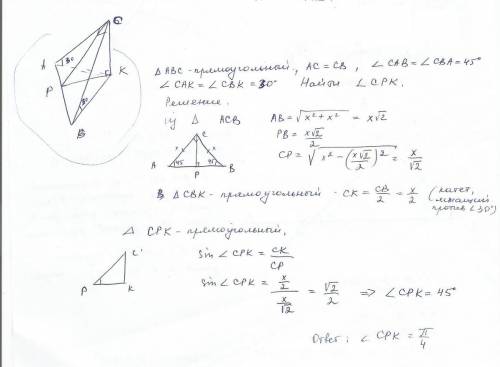 C
A
30
P
K
30
B
△ ABC - прямоугольный, AC = CB, ∠CAB = ∠CBA = 45°
∠CAK = ∠CBK = 30° Найти ∠CPK.
Решение.
1) △ ACB AB = √(x² + x²) = x√2
PB = x√2/2
CP = √(x² - (x√2/2)²) = x/√2
C
x x
45 45
A P B
В △CBK - прямоугольный - CK = CB/2 = x/2 (катет, лежащий против ∠30°)
△ CPK - прямоугольный,
C'
P K
sin ∠CPK = CK/CP
sin ∠CPK = (x/2)/(x/√2) = √2/2 ⇒ ∠CPK = 45°
Ответ: ∠CPK = π/4